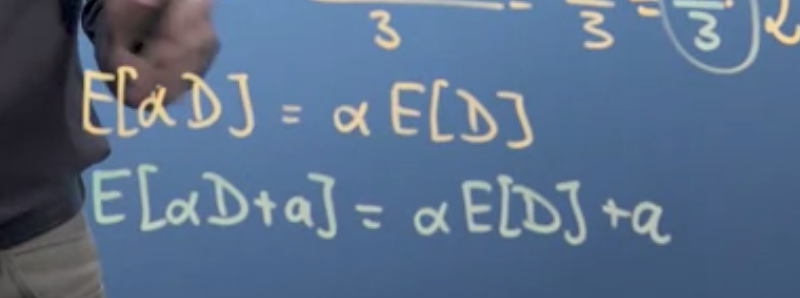 3 - 3 = 3
E[αD] = αE[D]
E[αD+a] = αE[D]+a